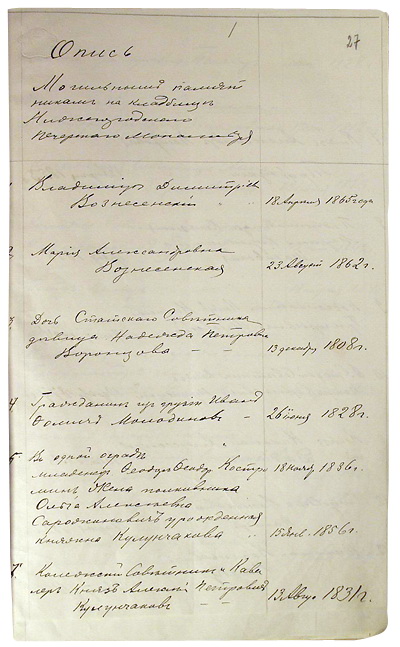 27
Опись
Могильнымъ памят
никамъ на кладбищѣ
Нижегородскаго
Печерскаго Монастыря
1 Владимиръ Димитріев
Вознесенскій " " 18 Апреля 1865 года
2 Марія Александровна
Вознесенская 23 Август 1862 г.
3 Дочь Статскаго Совѣтника
дѣвица Надежда Петровна
Воронцова – – 13 декабр 1808 г.
4 Гражданинъ Иванъ
Фомичъ Молодиновъ – 26 іюня 1828 г.
5 Въ одной оградѣ "
младенецъ Ѳеодоръ 18 Нояб 1836 г.
Жена полковника
Ольга Алексѣевна
урожденная
Княжна Кулунчакова " 1856 г.
7 Колежскій Совѣтникъ и Кава
леръ Князь Алексѣй Петровичъ
Кулунчаковъ – – 13 Авгус 1831 г.